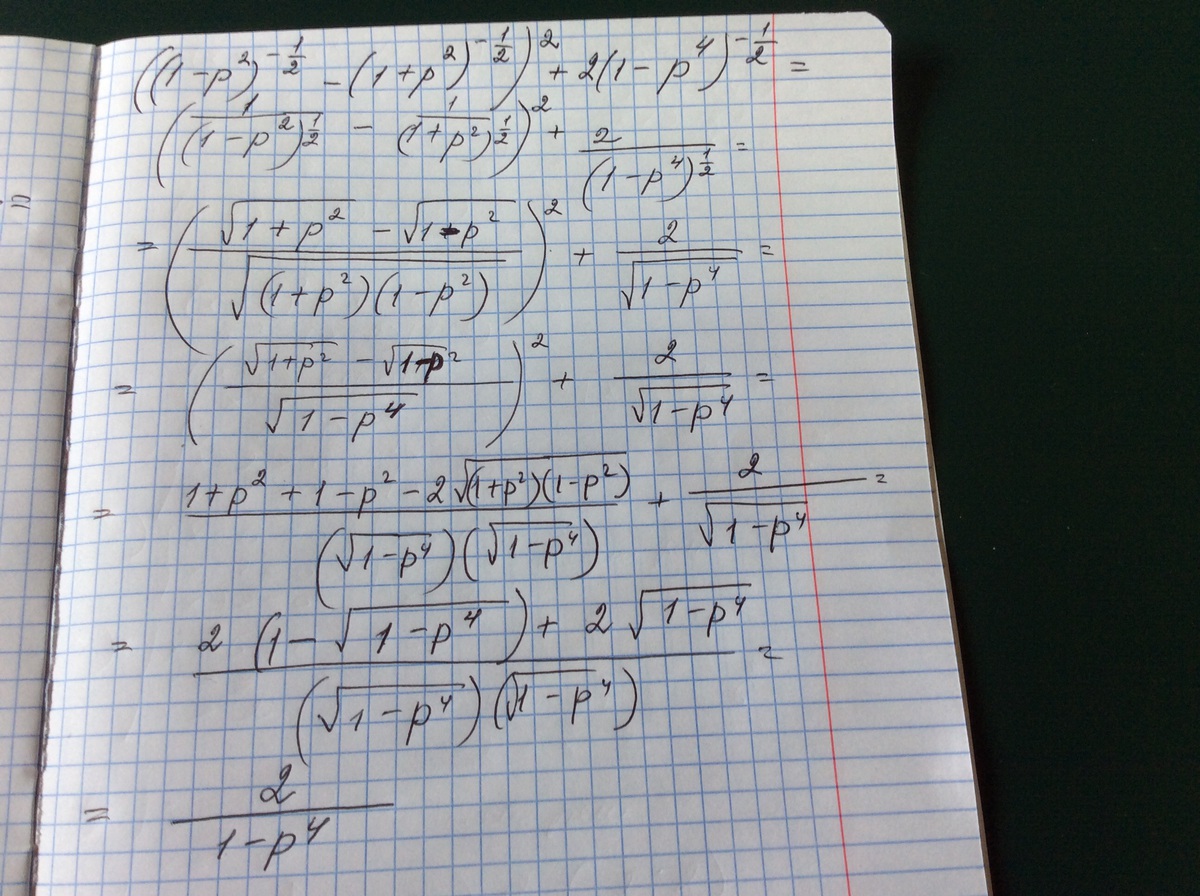 ((1-p²)^{-1/2} - (1+p²)^{-1/2})² + 2(1-p⁴)^{-1/2} =
(1/(1-p²)^{1/2} - 1/(1+p²)^{1/2})² + 2/(1-p⁴)^{1/2} =
= ((√(1+p²) - √(1-p²))/√((1+p²)(1-p²)))² + 2/√(1-p⁴) =
= ((√(1+p²) - √(1-p²))/√(1-p⁴))² + 2/√(1-p⁴) =
= (1+p²+1-p²-2√((1+p²)(1-p²)))/((√(1-p⁴))(√(1-p⁴))) + 2/√(1-p⁴) =
= (2(1-√(1-p⁴)) + 2√(1-p⁴))/((√(1-p⁴))(√(1-p⁴))) =
= 2/(1-p⁴)